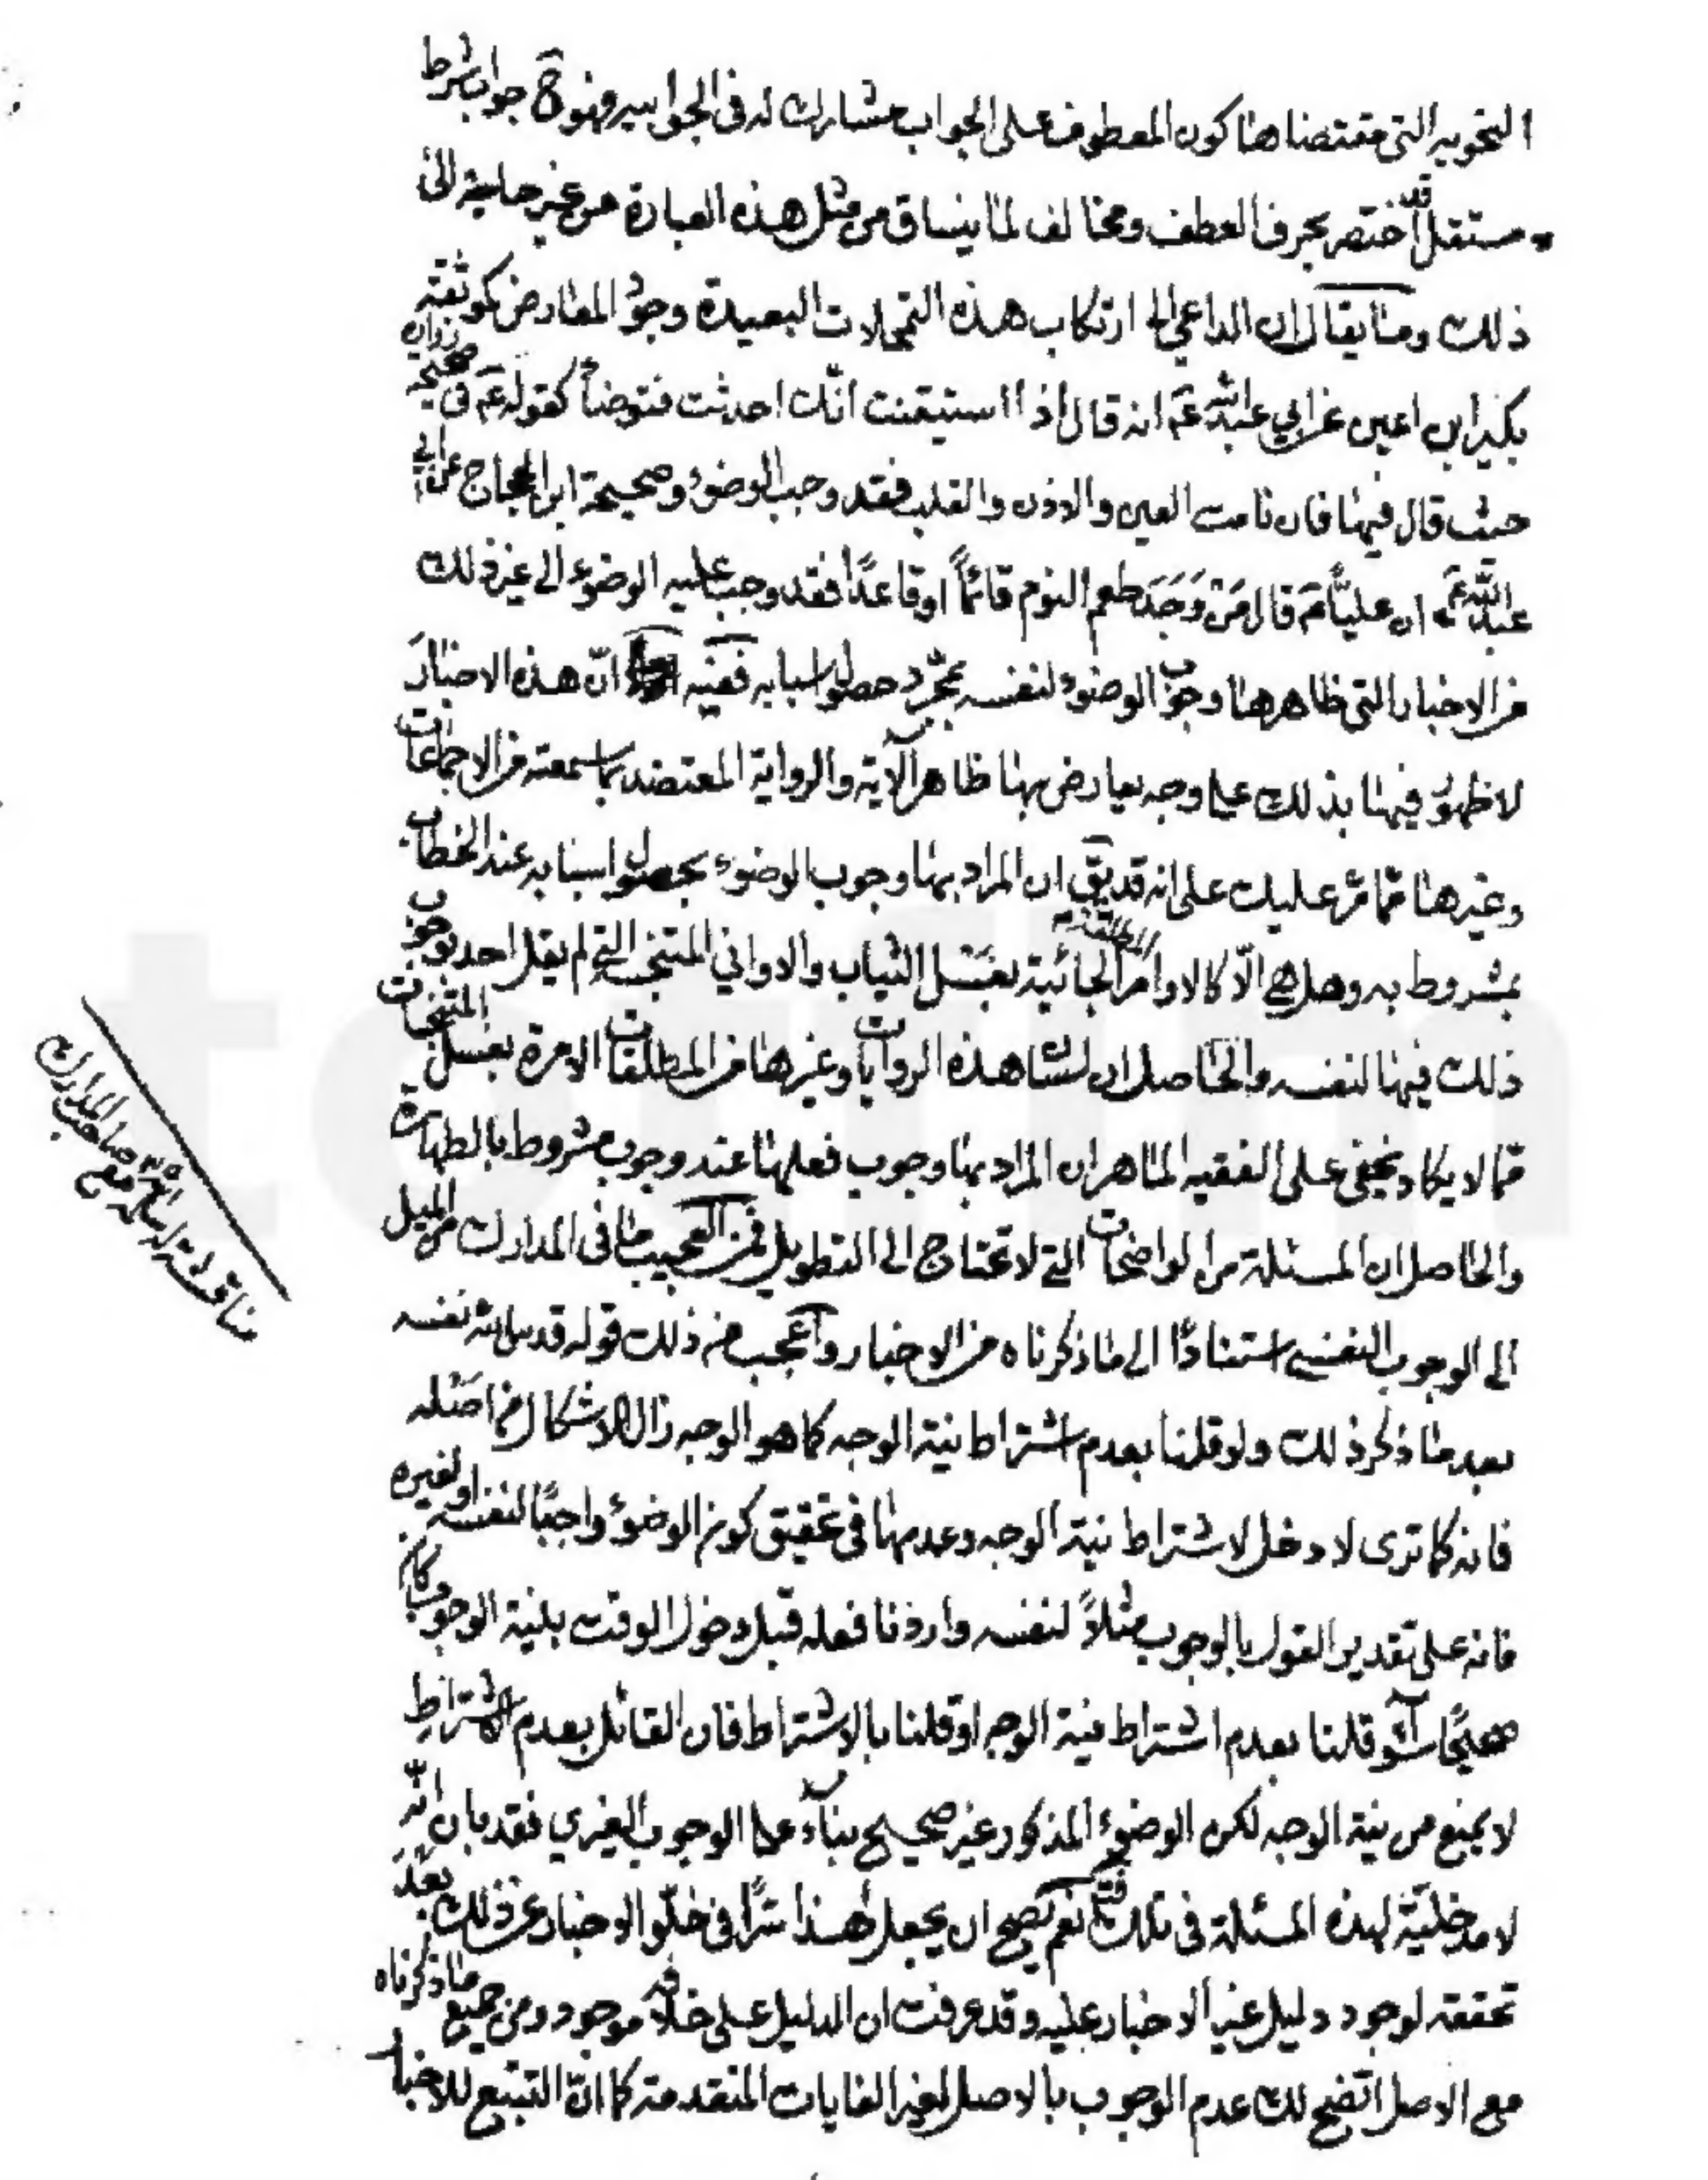 النحويه التى مقتضاها كون المعطوف على الجواب مشارك له فى الجوابيه وهو ح جواب شرط
مستقل قد اختصر بحرف العطف ومخالف لما ينساق من مثل هذه العبارة من غير حاجة الى
ذلك وما يقال ان الداعي الى ارتكاب هذه التمحلات البعيدة وجود المعارض كموثقة
بكير ابن اعين عن ابي عبد الله عَم انه قال اذا استيقنت انّك احدثت فتوضأ كقوله عَم فى صحيحة زرارة
حيث قال فيها فان نامت العين والاذن والقلب فقد وجب الوضوء وصحيحة ابن الحجاج عن ابي
عبد الله عَم ان عليّاً عَم قال مَنْ وَجَدَ طعم النوم قائماً او قاعدًا فقد وجب عليه الوضوء الى غير ذلك
من الاخبار التى ظاهرها وجوب الوضوء لنفسه بمجرّد حصول اسبابه ففيه انّ هذه الاخبار
لا ظهور فيها بذلك على وجه يعارض بها ظاهر الآية والرواية المعتضد بما سمعته من الاجماعات
وغيرها ممّا مرّ عليك على انه قد يقَ ان المراد بها وجوب الوضوء بحصول اسبابه عند الخطاب
بمشروط به وهل هي الّا كالاوامر المطلقة الجائية بغسل الثياب والاواني المتنجسة التي لم يقل احد بوجوب
ذلك فيها لنفسه والحاصل ان لسان هذه الروايات وغيرها من المطلقات الامرة بغسل المتنجسات
ممّا لا يكاد يخفى على الفقيه الماهر ان المراد بها وجوب فعلها عند وجوب مشروط بالطهارة
والحاصل ان المسئلة من الواضحات التي لا تحتاج الى التطويل فمن العجيب ما فى المدارك من الميل
الى الوجوب النفسي استنادًا الى ما ذكرناه من الاخبار واعجب من ذلك قوله قدس الله نفسه
بعد ما ذكر ذلك ولو قلنا بعدم اشتراط نية الوجه كما هو الوجه زال الاشكال من اصله
فانه كما ترى لا دخل لاشتراط نية الوجه وعدمها فى تحقيق كون الوضوء واجبًا لنفسه او لغيره
فانه على تقدير القول بالوجوب مثلاً لنفسه واردنا فعله قبل دخول الوقت بنية الوجوب كان
صحيحًا سواء قلنا بعدم اشتراط نية الوجه او قلنا بالاشتراط فان القائل بعدم الاشتراط
لا يمنع من نية الوجه لكن الوضوء المذكور غير صحيح بناءً على الوجوب الغيري فقد بان انّه
لا مدخليّة لهذه المسئلة فى تلك نعم يصح ان يجعل هذا سرًّا فى خلّو الاخبار عن ذلك بعد
تحققه لوجود دليل غير الاخبار عليه وقد عرفت ان الدليل على خلافه موجود ومن جميع ما ذكرناه
مع الاصل اتضح لك عدم الوجوب بالاصل لغير الغايات المتقدمة كما انّ التتبع للاخبار
صاحب المدارك